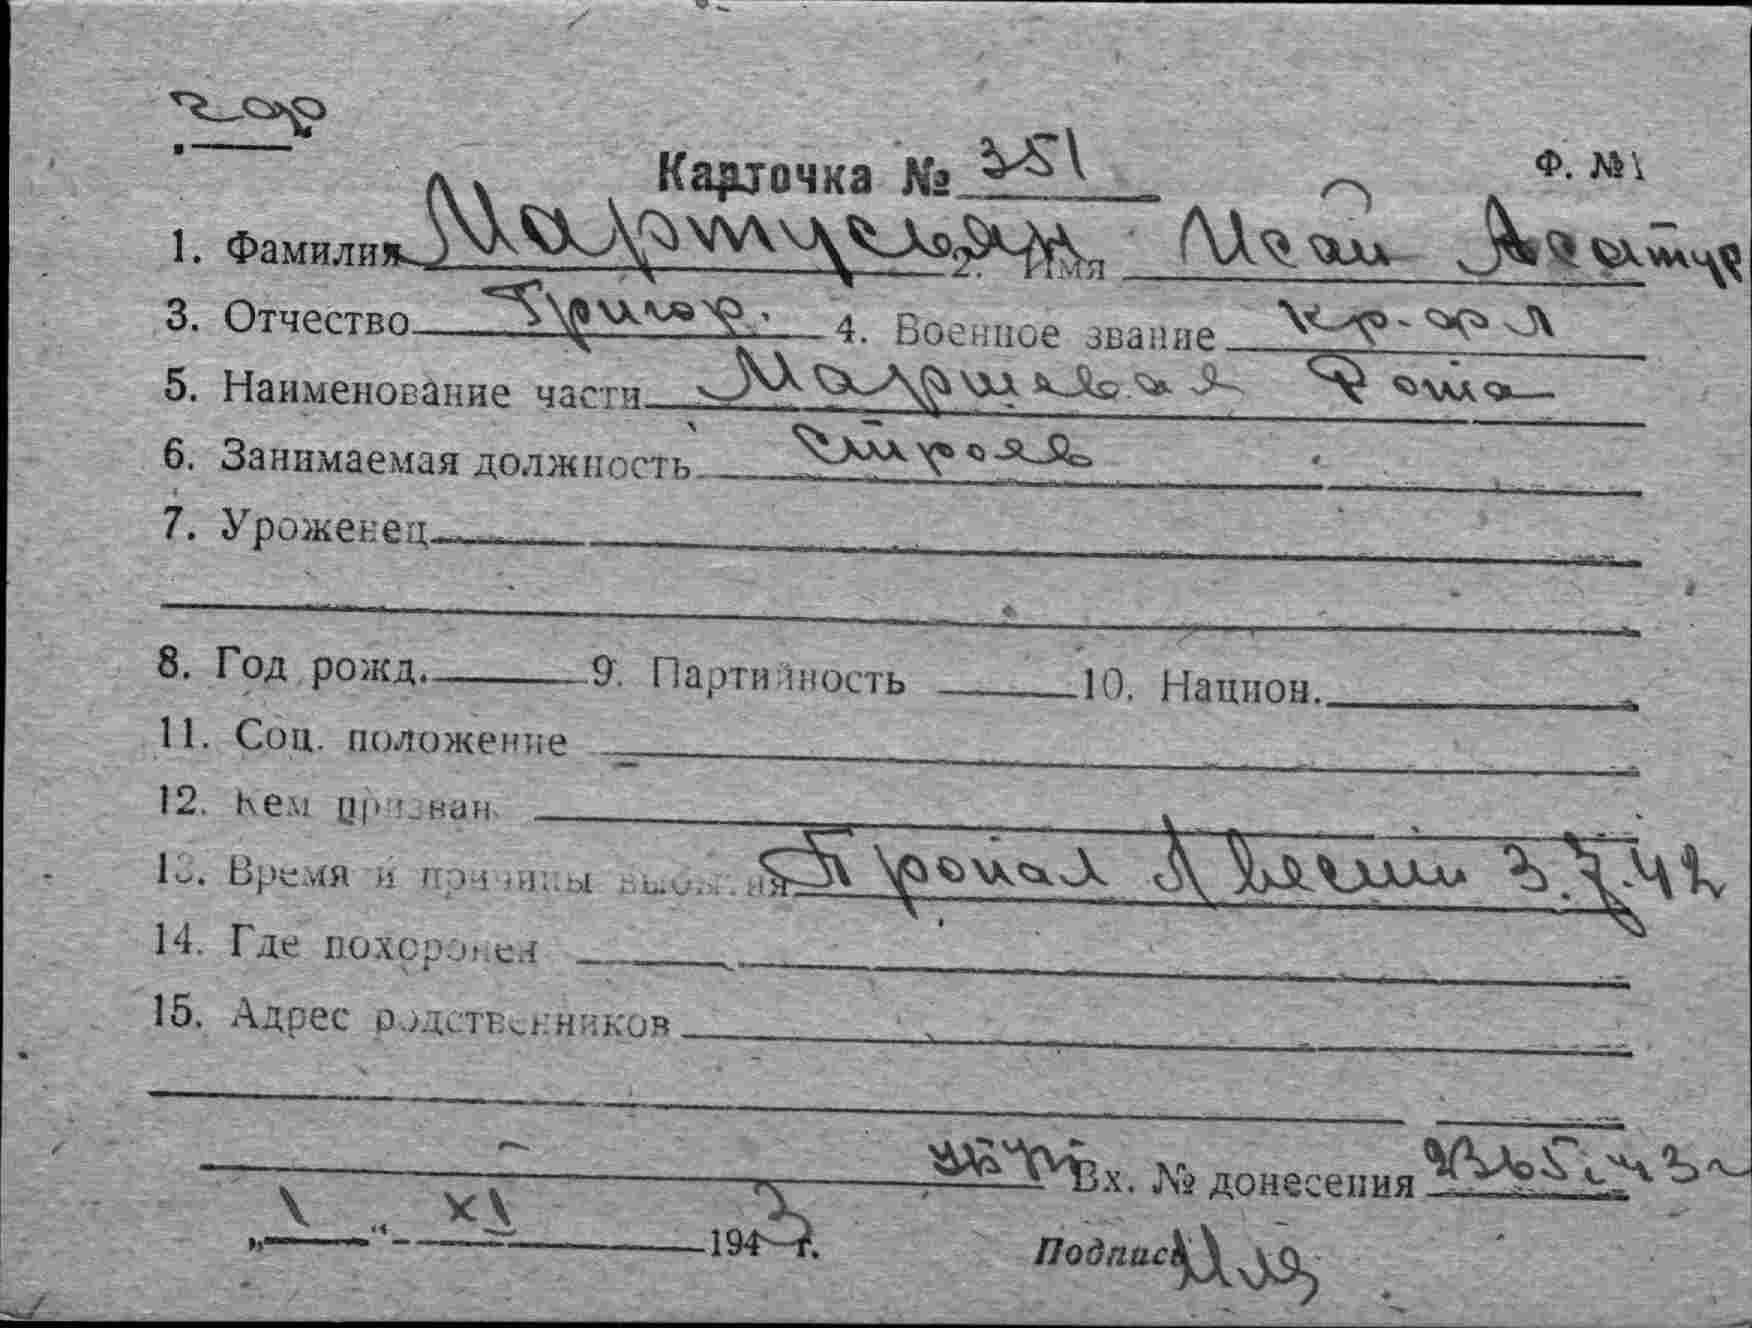 Карточка № 351
Ф. №1
1. Фамилия 2. Имя
3. Отчество Григор. 4. Военное звание кр-ар
5. Наименование части Маршевая Рота
6. Занимаемая должность
7. Уроженец
8. Год рожд. 9. Партийность 10. Национ.
11. Соц. положение
12. Кем призван
13. Время и причины выбытия Пропал Без вести 3.7.42
14. Где похоронен
15. Адрес родственников
Вх. № донесения
„1“ XI 1943 г.
Подпись